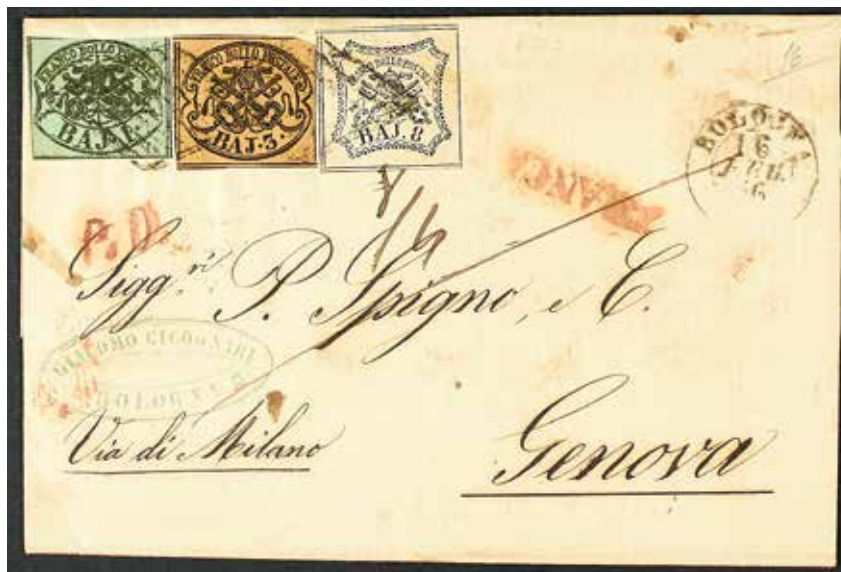 FRANCO BOLLO POSTALE
BAJ. 1.
FRANCO BOLLO POSTALE
BAJ. 3.
FRANCO BOLLO POSTALE
BAJ. 8
16
BOLOGNA
16
FEB.
P.D.
Sigg.ri P. Spigno, e C.
GIACOMO CICOGNARI
BOLOGNA
Via di Milano
Genova